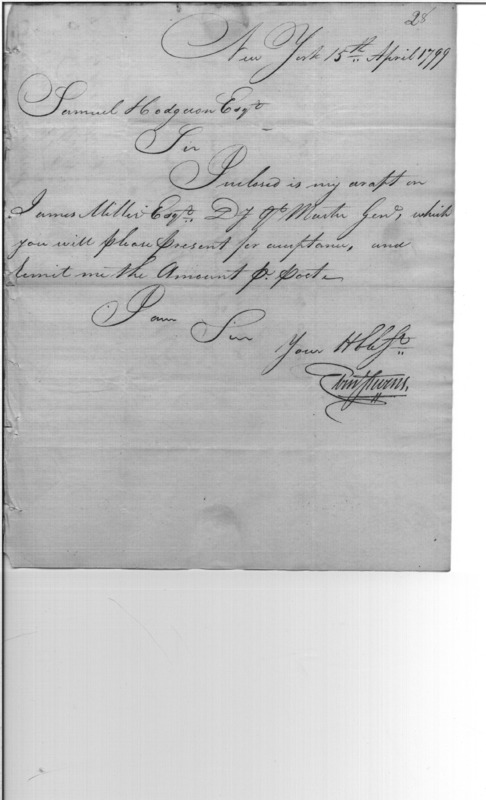 28
New York 15th April 1799
Samuel Hodgdon Esqr
Sir
Inclosed is my draft on
James Miller Esqr. Dy Qr. Master Genl, which
you will please present for acceptance, and
remit me the Amount pr. Post
I am Sir
Your H Sr
Stevens